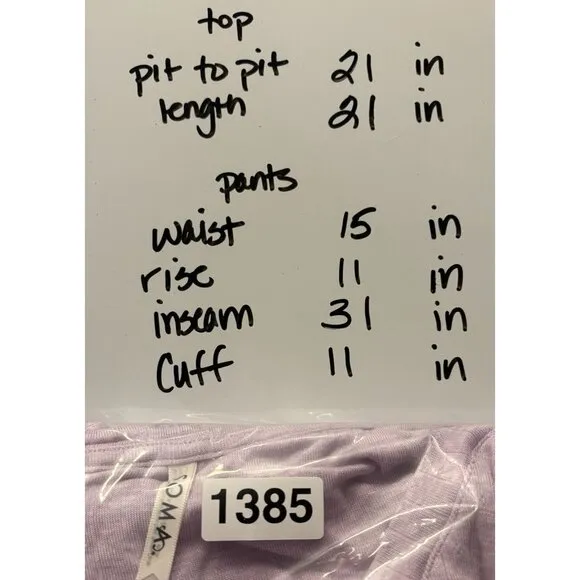 top
pit to pit 21 in
length 21 in
pants
waist 15 in
rise 11 in
inseam 31 in
Cuff 11 in
SOMA
1385